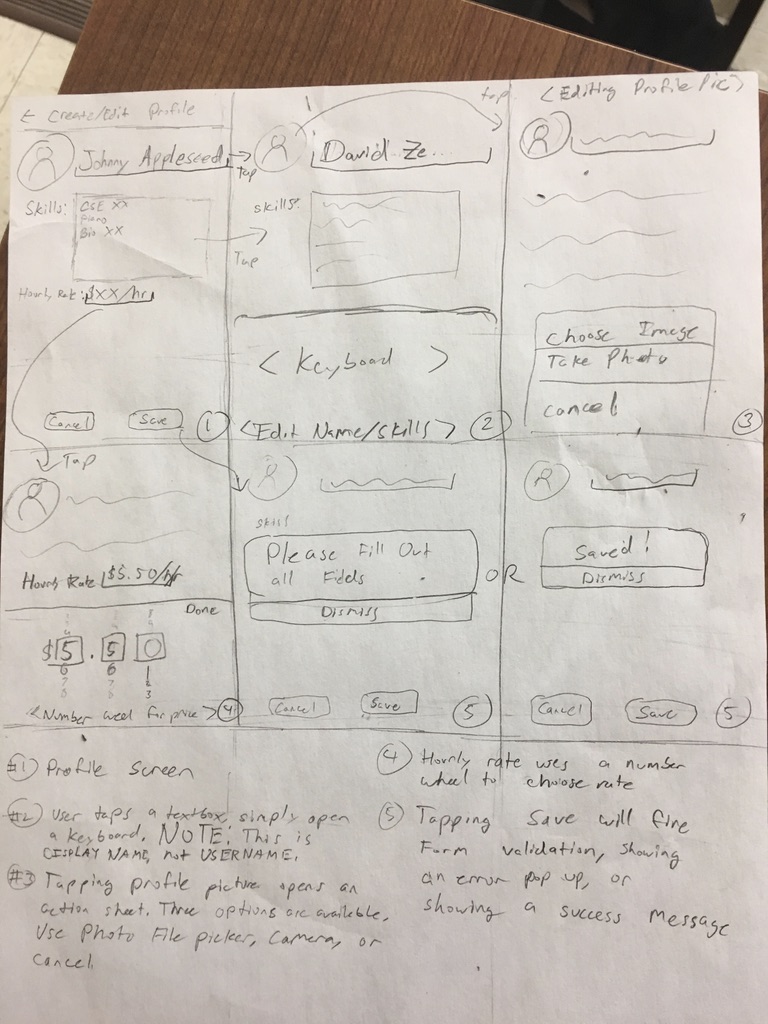 ← Create/Edit Profile
Johnny Appleseed
Skills:
CSE XX
Piano
Bio XX
Hourly Rate: $XX/hr
Cancel
Save
1
Tap
Tap
David Ze...
Skills:
< Keyboard >
<Edit Name/Skills>
2
tap
<Editing Profile Pic>
Choose Image
Take Photo
Cancel
3
Tap
Hourly Rate $5.50/hr
Done
$ 5 . 5 0
6 6 1
7 7 2
8 8 3
<Number weel for price>
4
Skill
Please Fill Out
all Fields
Dismiss
Cancel
Save
5
OR
Saved!
Dismiss
Cancel
Save
5
#1 Profile Screen
#2 User taps a textbox, simply open
a keyboard. NOTE: This is
DISPLAY NAME, not USERNAME.
#3 Tapping profile picture opens an
action sheet. Three options are available,
Use Photo File picker, Camera, or
Cancel
4 Hourly rate uses a number
wheel to choose rate
5 Tapping Save will fire
Form validation, showing
an error pop up, or
showing a success message